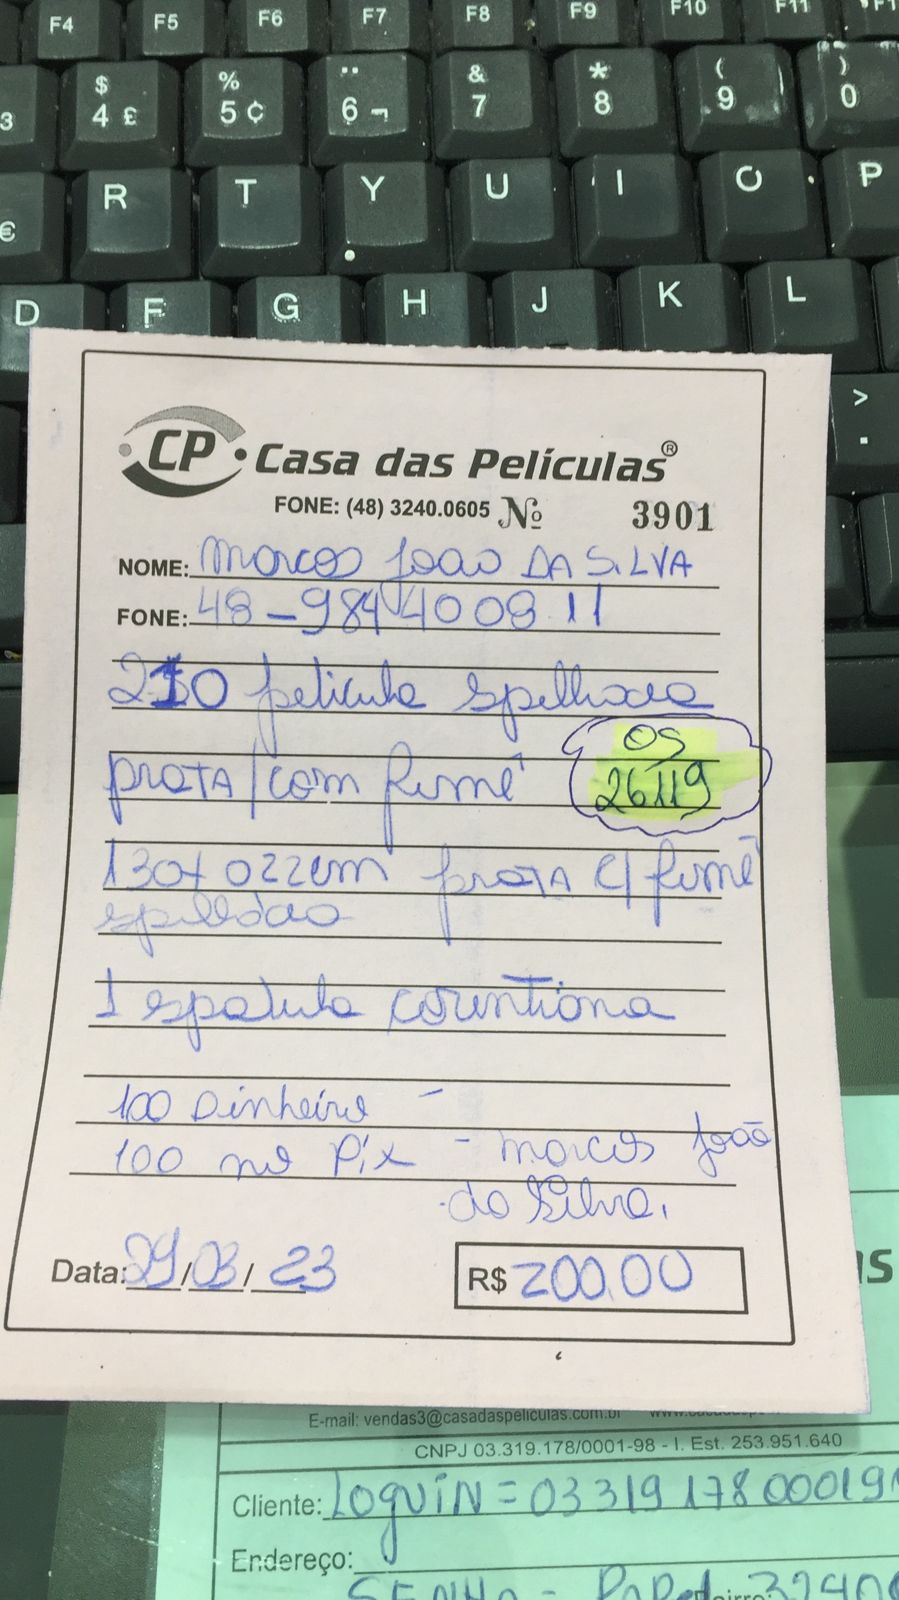 F4 F5 F6 F7 F8 F9 F10 F11 F1
3 $ 4 £ % 5 ¢ ¨ 6 ¬ & 7 * 8 ( 9 ) 0
€ R T Y U I O P
D F G H J K L
> .
CP Casa das Películas®
FONE: (48) 3240.0605 Nº 3901
NOME: Marcos João DA SiLVA
FONE: 48-984400811
210 pelicula spelhada
OS
prata/com fumê 26119
130x022cm prata c/ fumê
spelhdao
1 spatula corintiana
100 Dinheiro -
100 no Pix - Marcos João
da Silva.
Data: 29/03/23 R$ 200.00
as
E-mail: vendas3@casadaspeliculas.com.br
CNPJ 03.319.178/0001-98 - I. Est. 253.951.640
Cliente: LOGUiN = 0331917800019
Endereço:
SENHA - Bairro: 32406